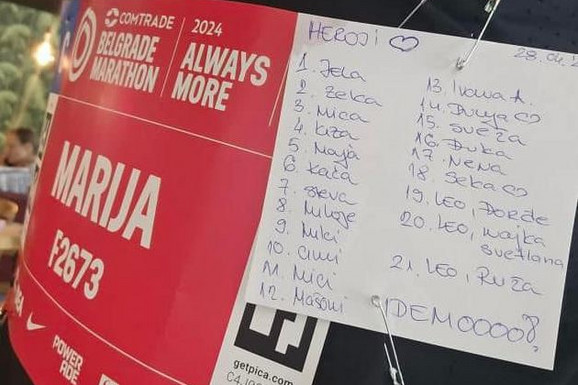 COMTRADE
BELGRADE
MARATHON
2024
ALWAYS
MORE
MARIJA
F2673
POWER
getpica.com
HEROJI ♡
28.04.2
1. Jela
2. Zeka
3. Mica
4. Kiza
5. Maja
6. Kaća
7. Steva
8. Miloje
9. Miki
10. Cimi
11. Mići
12. Mašoni
13. Ivona A.
14. Dunja ♡
15. Sveža
16. Đuka
17. Nena
18. Seka ♡
19. LEO, Đorđe
20. LEO, Majka
Svetlana
21. LEO, Ruža
IDEMOOOO